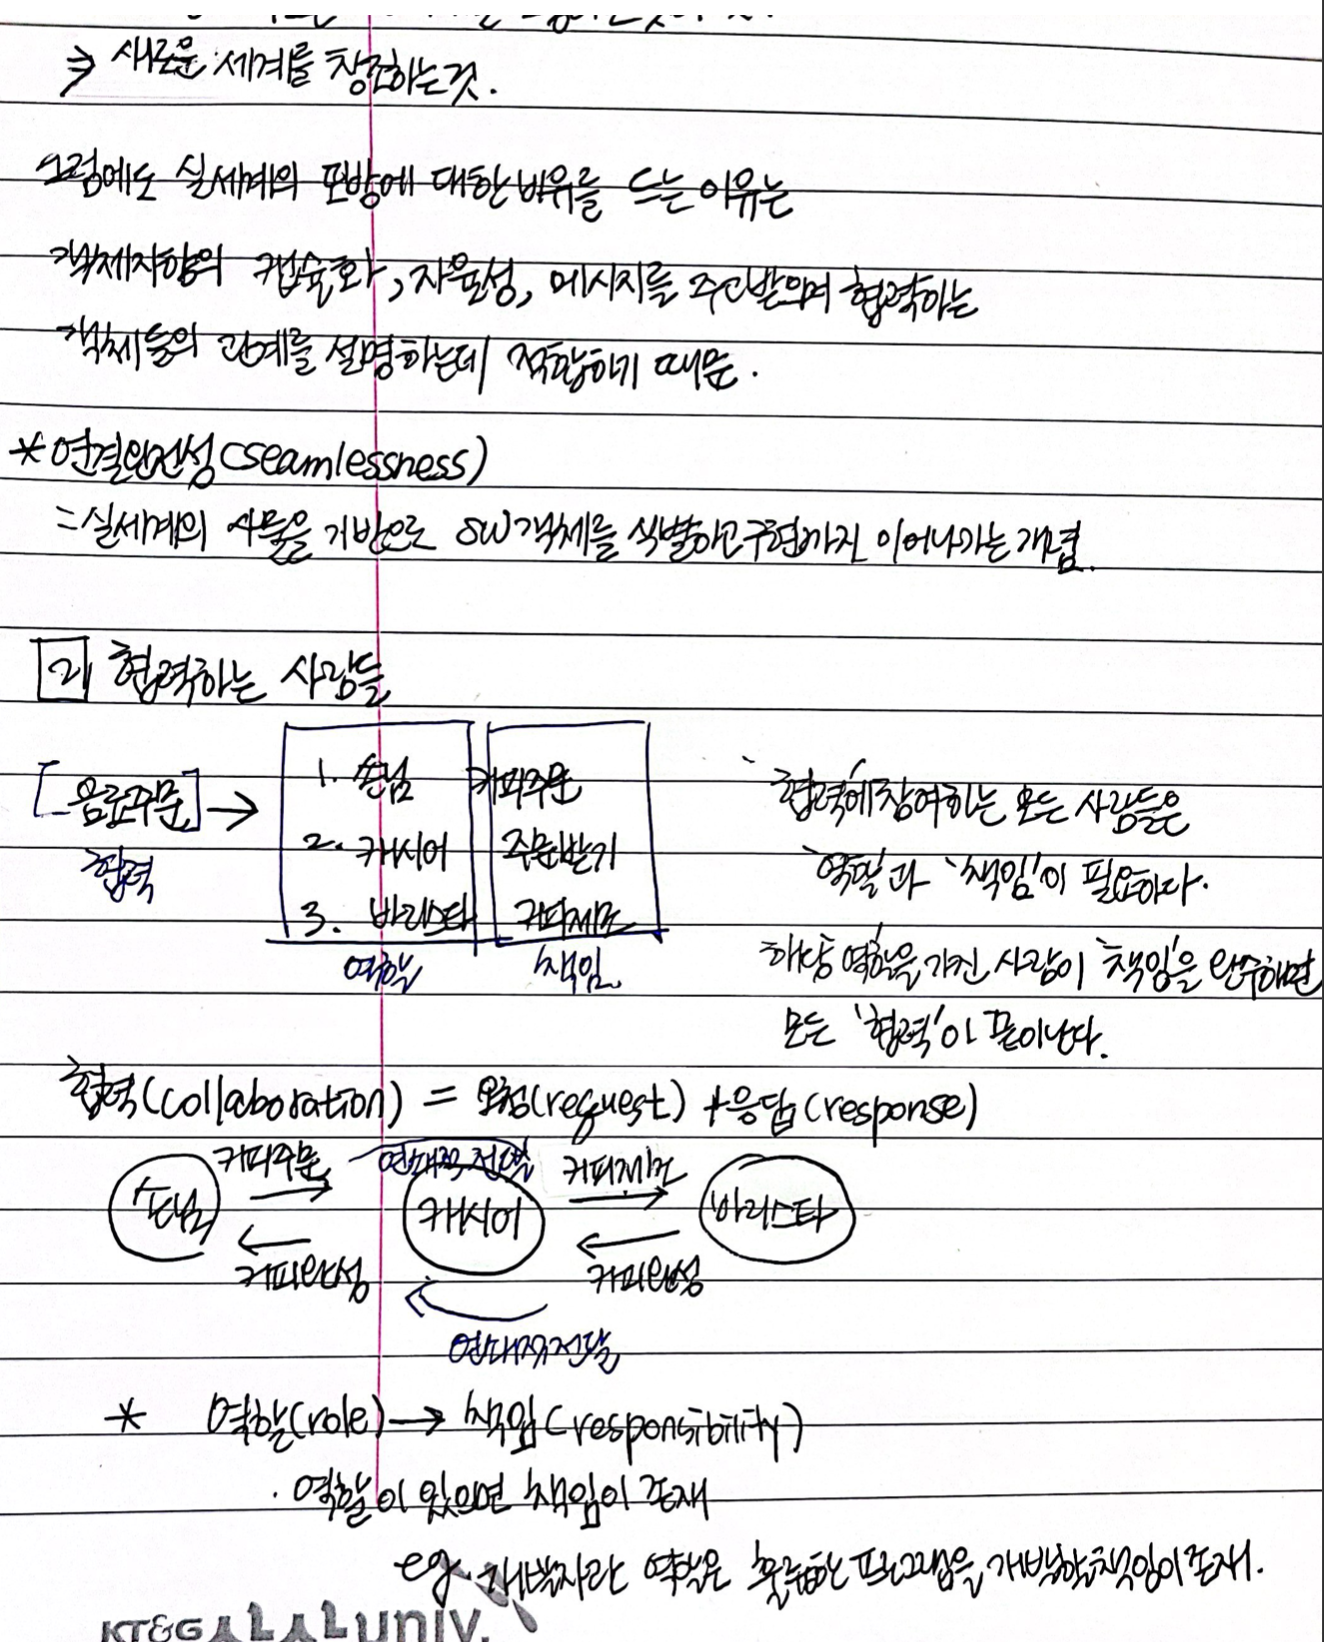 ⇒ 새로운 세계를 창조하는것.
그럼에도 실세계의 모방에 대한 비유를 드는 이유는
객체지향의 캡슐화, 자율성, 메시지를 주고받으며 협력하는
객체들의 관계를 설명하는데 적합하기 때문.
* 연결완전성(seamlessness)
= 실세계의 사물을 기반으로 SW객체를 식별하고 구현까지 이어나가는 개념.
2 협력하는 사람들
[음료주문] →
협력
1. 손님 커피주문
2. 캐시어 주문받기
3. 바리스타 커피제조
역할 책임
'협력'에 참여하는 모든 사람들은
'역할'과 '책임'이 필요하다.
해당 '역할'을 가진 사람이 '책임'을 완수해면
모든 '협력'이 끝이난다.
협력(collaboration) = 요청(request) + 응답(response)
커피주문 연대적 전달 커피제조
손님 캐시어 바리스타
커피완성 커피완성
연대적 전달
* 역할(role) → 책임(responsibility)
· 역할이 있으면 책임이 존재
eg. 개발자란 역할은 훌륭한 프로그램을 개발할 책임이 존재.
KT&G 상상univ.